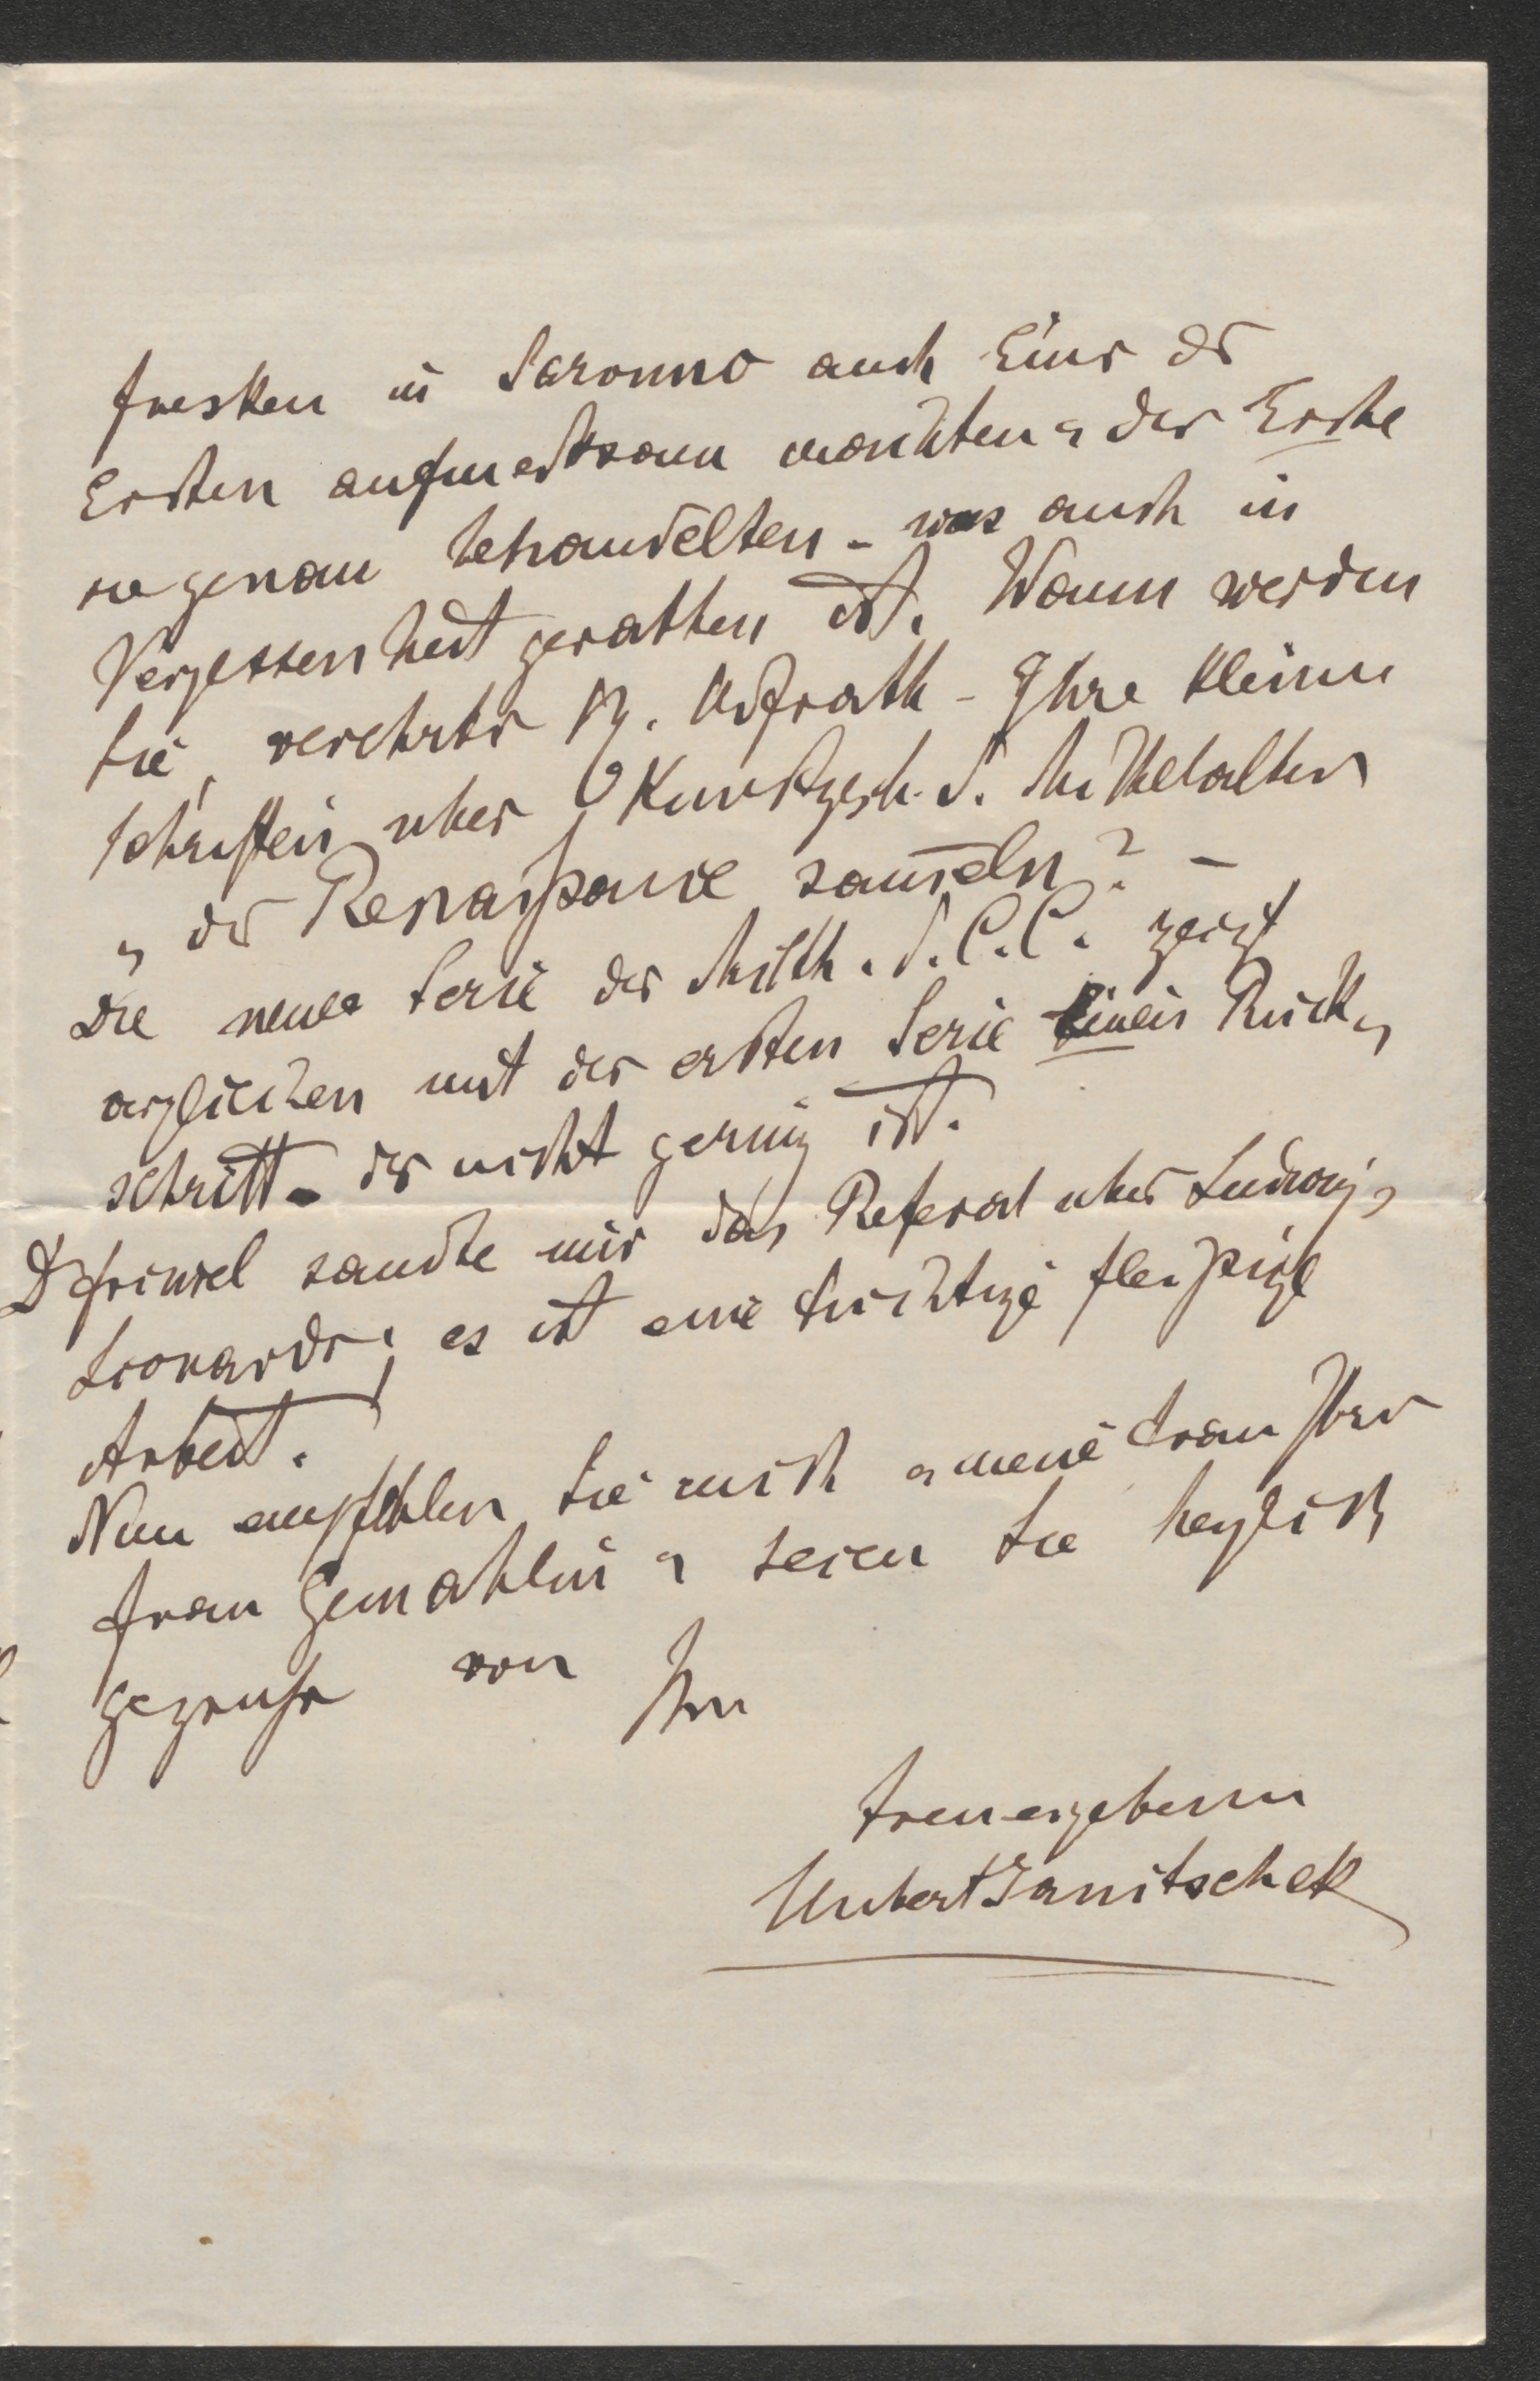 Fresken in Saronno auch Einer der
Ersten aufmerksam machten u der Erste
sie genau behandelten - was auch in
Vergessenheit gerathen ist. Wann werden
Sie, verehrter H. Hofrath - Ihre kleinen
Schriften über Kunstgesch. d. Mittelalters
u der Renaissance sameln? -
Die neue Serie der Mitth. d. C. C. zeigt
verglichen mit der ersten Serie einen Rück,
schritt - der nicht gering ist.
Dr Frimmel sandte mir das Referat über Ludwig,
Leonardo; es ist eine tüchtige fleißige
Arbeit.
Nun empfehlen Sie mich u meine Frau Ihrer
Frau Gemahlin u seien Sie herzlich
gegrüßt von Ihrem
treuergebenen
Hubert Janitschek